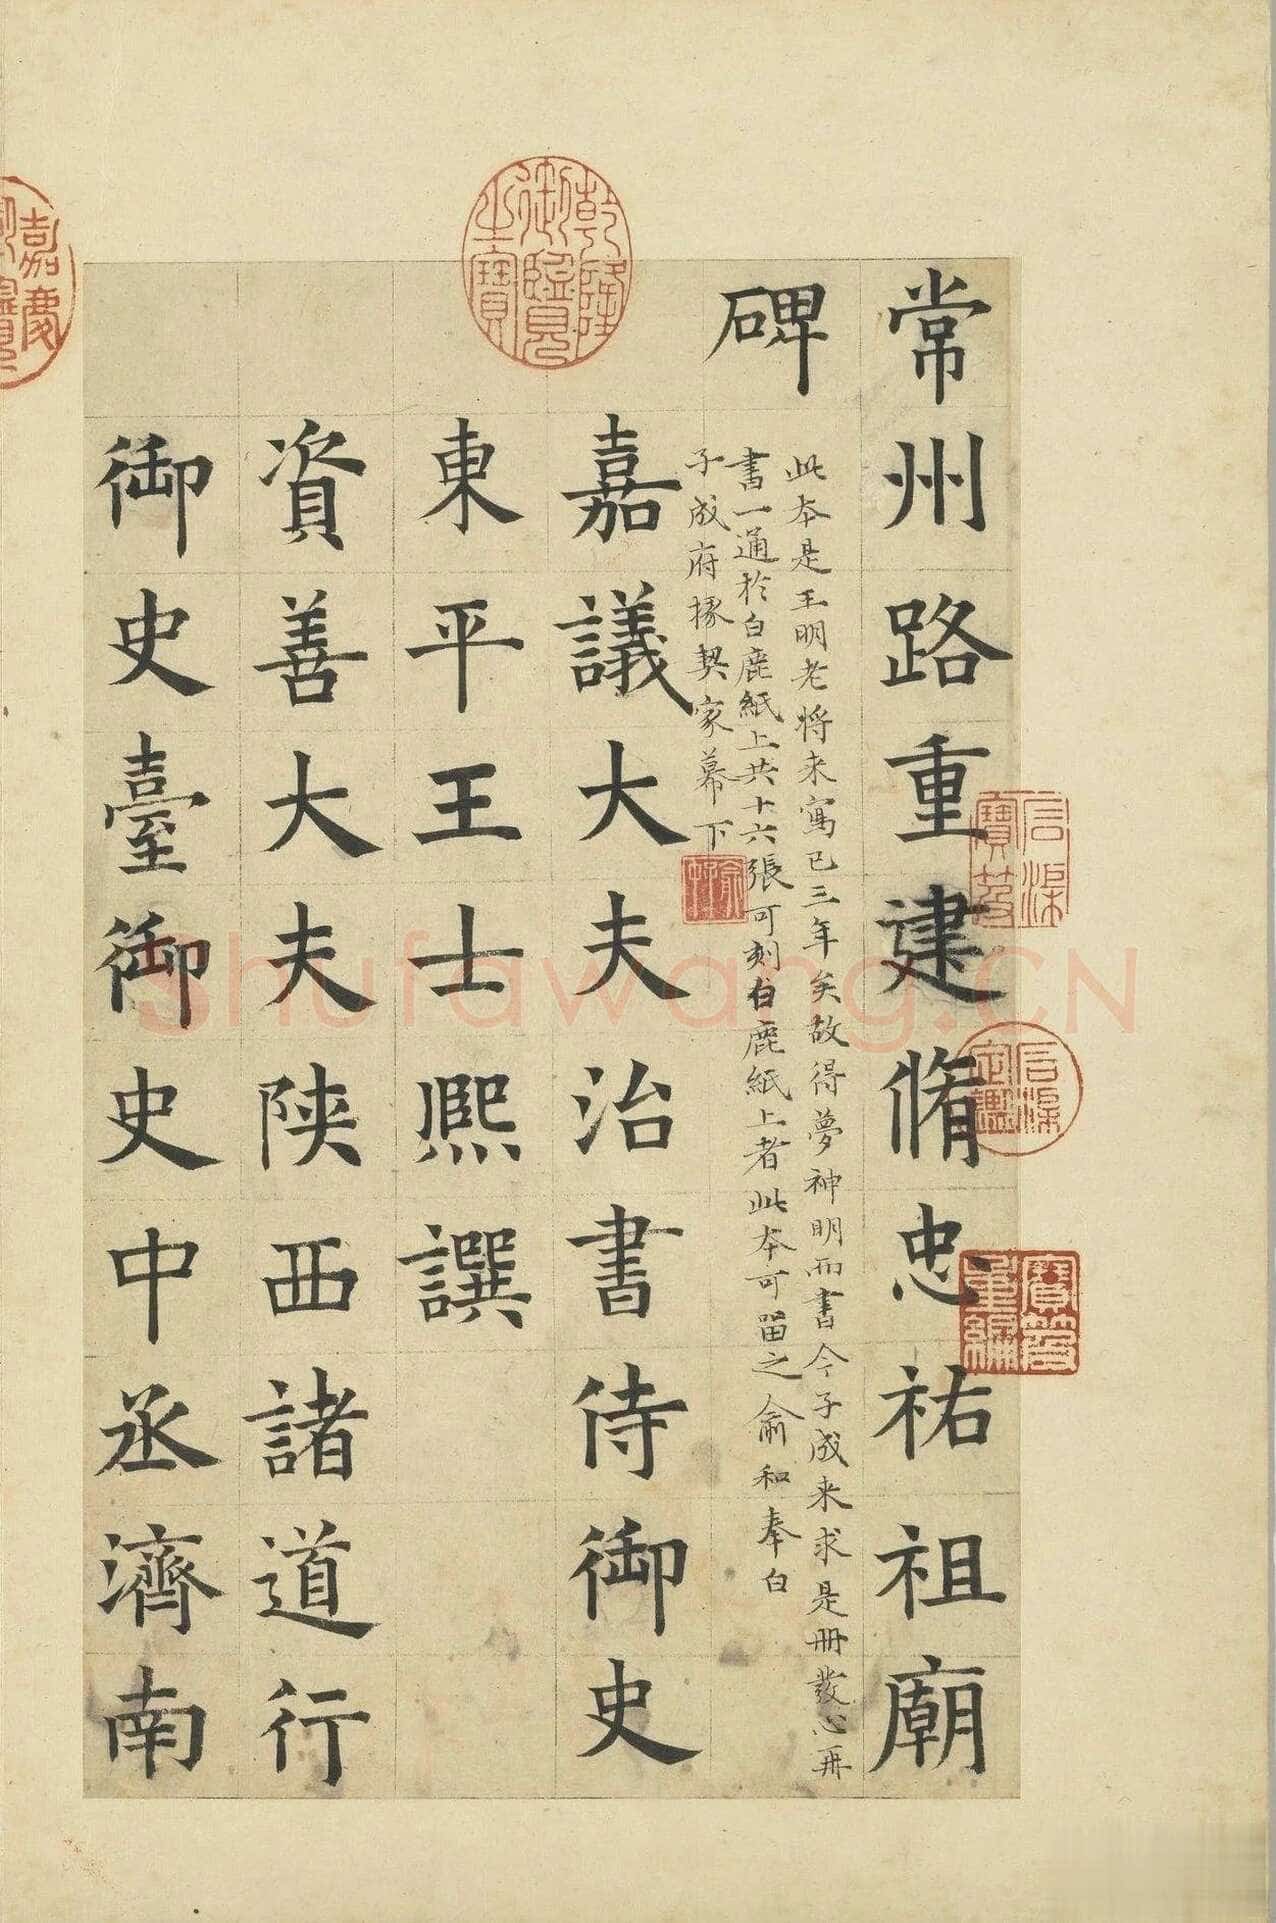 常州路重建脩忠祐祖廟
碑
此本是王明老将来寫已三年矣故得夢神明而書今子成来求是册發心再
書一通於白鹿紙上共十六張可刻白鹿紙上者此本可留之俞和奉白
子成府掾契家幕下
嘉議大夫治書侍御史
東平王士熙譔
資善大夫陝西諸道行
御史臺御史中丞濟南
乾隆御覽之寶
嘉慶
石渠寶笈
石渠定鑑
寶笈重編
shufawang.CN